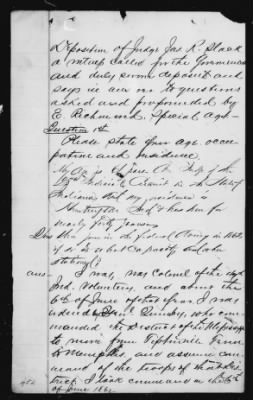 Deposition of Judge Jas R. Slack
a witness called for the Government
and duly sworn deposeth and
says in answer to questions
asked and propounded by
E. Richmond Special Agt-
Question 1st
Please state your age, occu
pation and residence.
My age is years Am Judge of the
Circuit in the State of
Indiana that my residence is
Huntington Ind & has been for
nearly forty years
Ques Were you in the of
if so in what capacity and
stationed?
Ans- I was, was Colonel of the 47th
Ind. Volunteers, and about the
6th of June of that year I was
ordered by Genl. Quinby, who com
manded the District of the Mississippi
to move from Tiptonville Tenn
to Memphis, and assume com
mand of the troops of that Dis
trict. I took command on the
of June 1862